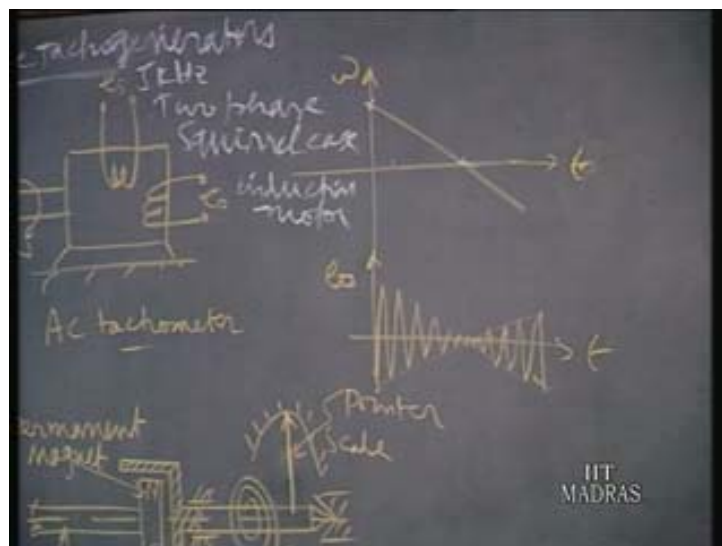 c Tachogenerators
Two phase
Squirrel case
induction
motor
Ac tachometer
ω
t
e₀
t
ermanent
magnet
Pointer
Scale
IIT
MADRAS